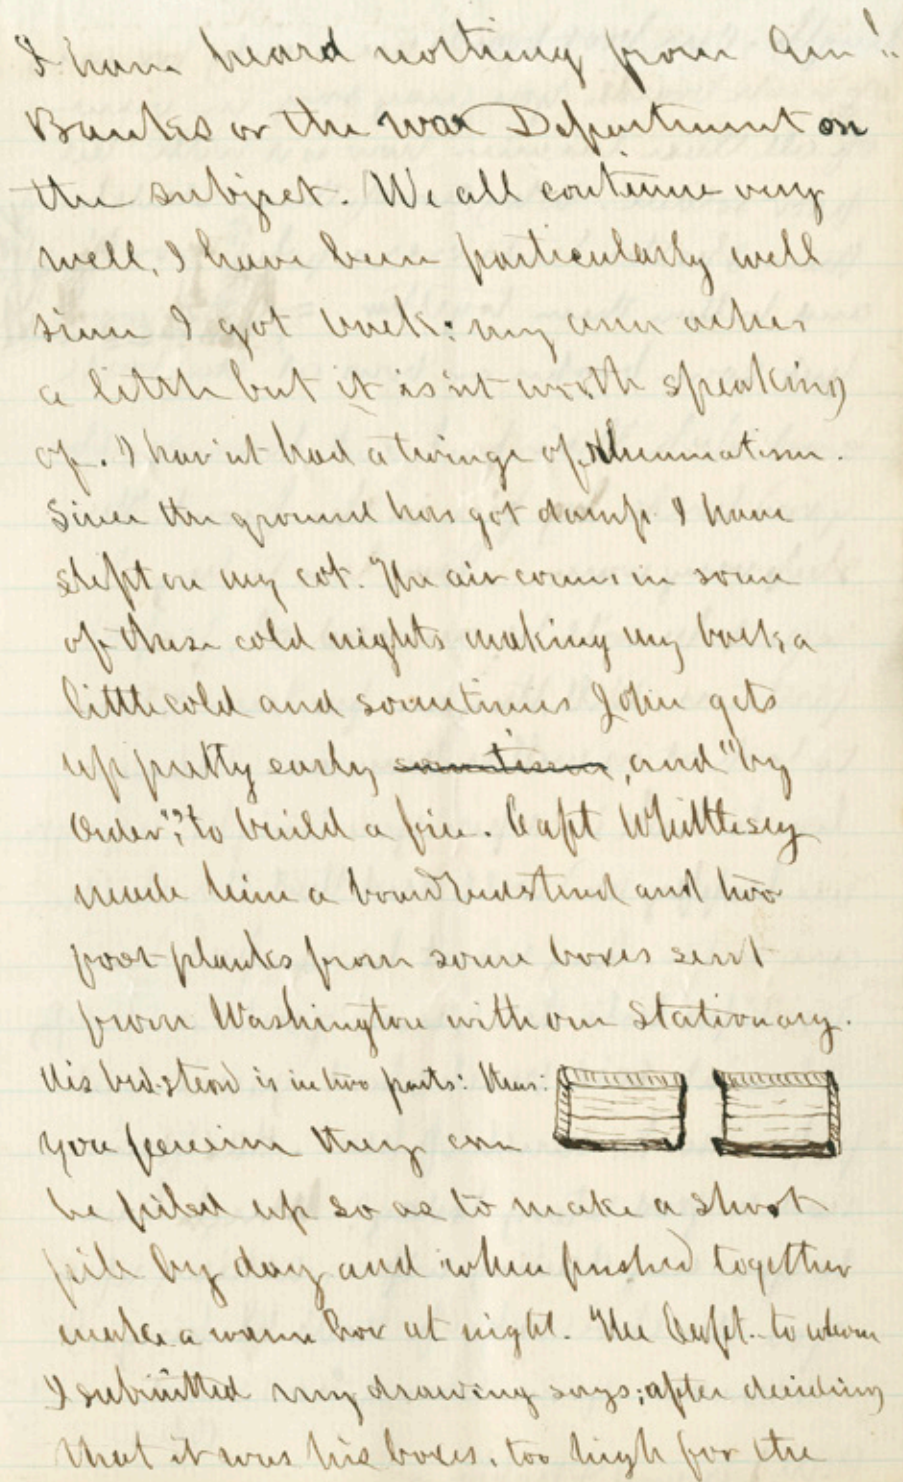 I have heard nothing from Gen'l.
Banks or the War Department on
the subject. We all continue very
well, I have been particularly well
since I got back: my arm aches
a little but it is'nt worth speaking
of. I hav'nt had a twinge of rheumatism.
Since the ground has got damp I have
slept on my cot. The air comes in some
of these cold nights making my back a
little cold and sometimes John gets
up pretty early sometimes, and "by
order", to build a fire. Capt Whittlesey
made him a board bedstead and two
foot planks from some boxes sent
from Washington with our Stationary.
His bed-stead is in two parts: thus:
you perceive they can
be piled up so as to make a short
pile by day and when pushed together
make a warm box at night. The Capt. to whom
I submitted my drawing says; after deciding
that it was his boxes, too high for the